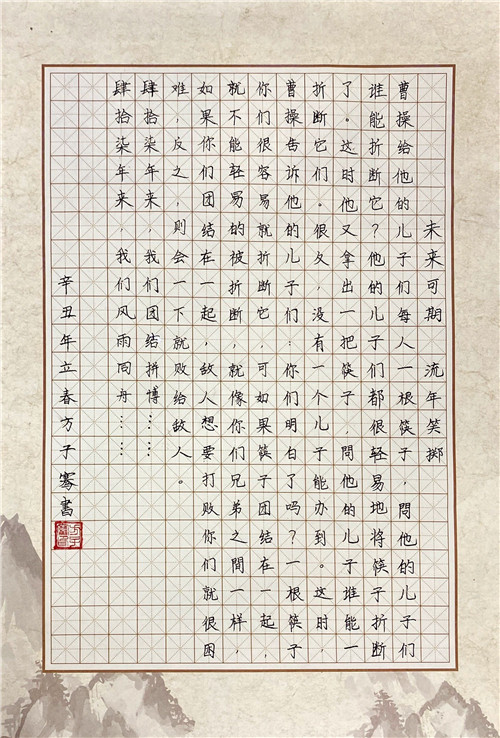 未来可期 流年笑掷
曹操给他的儿子们每人一根筷子，問他的儿子们
谁能折断它？他的儿子们都很轻易地将筷子折断
了。这时他又拿出一把筷子，問他的儿子谁能一
折断它们。很久，没有一个儿子能办到。这时，
曹操告诉他的儿子们：你们明白了吗？一根筷子
你们很容易就折断它，可如果筷子团结在一起，
就不能轻易的被折断，就像你们兄弟之間一样，
如果你们团结在一起，敌人想要打败你们就很困
难，反之，则会一下就败给敌人。
肆拾柒年来，我们团结拼博……
肆拾柒年来，我们风雨同舟……
辛丑年立春方子骞書